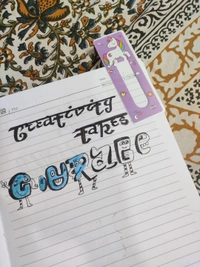 Creativity
Takes
COURAGE